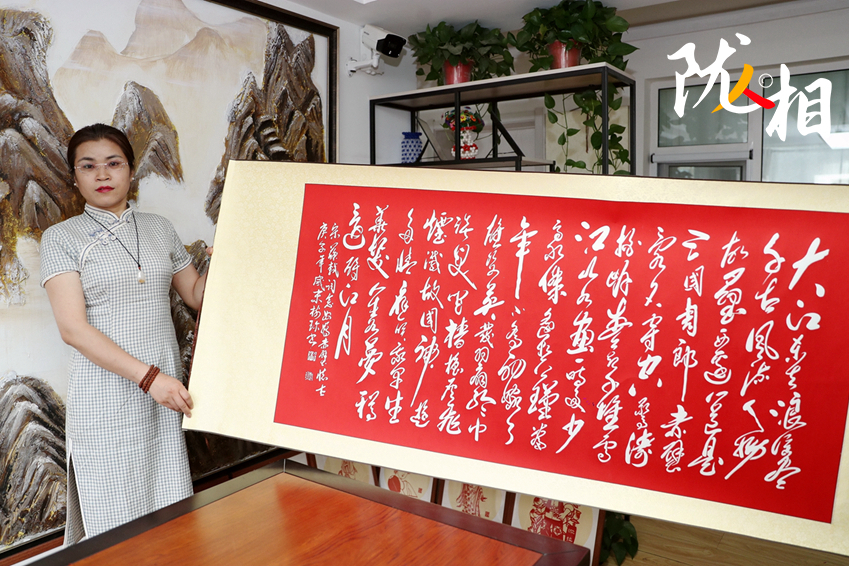 陇人相
大江东去浪淘尽
千古风流人物
故垒西边人道是
三国周郎赤壁
乱石穿空惊涛
拍岸卷起千堆雪
江山如画一时多少
豪杰遥想公瑾当
年小乔初嫁了
雄姿英发羽扇纶巾
谈笑间樯橹灰飞
烟灭故国神游
多情应笑我早生
华发如梦一樽
江月
宋苏轼词念奴娇赤壁怀古
庚子年